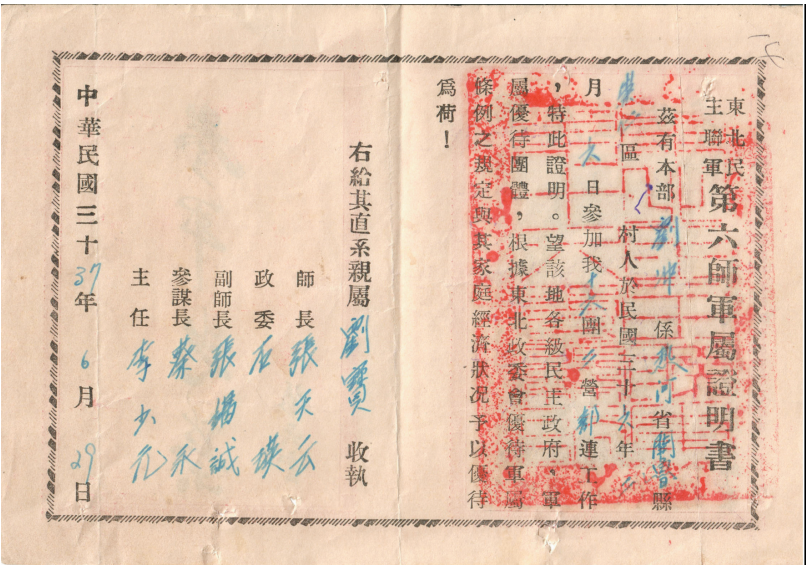 14
東北民主聯軍第六師軍屬證明書
茲有本部劉 係 河省 縣
區 村人於民國三十六年二
月 六 日參加我十八團 營部連工作
，特此證明。望該地各級民主政府、軍
屬優待團體，根據東北政委會優待軍屬
條例之規定與其家庭經濟狀况予以優待
為荷！
右給其直系親屬劉寶 收執
師 長 張天云
政 委 石 瑛
副師長 張 誠
參謀長 蔡 永
主 任 李少元
中華民國三十37年 6月 29日